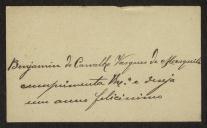 Benjamim de Carvalho Vasques de Mesquita
cumprimenta V. Ex.ª e deseja
um anno felicissimo